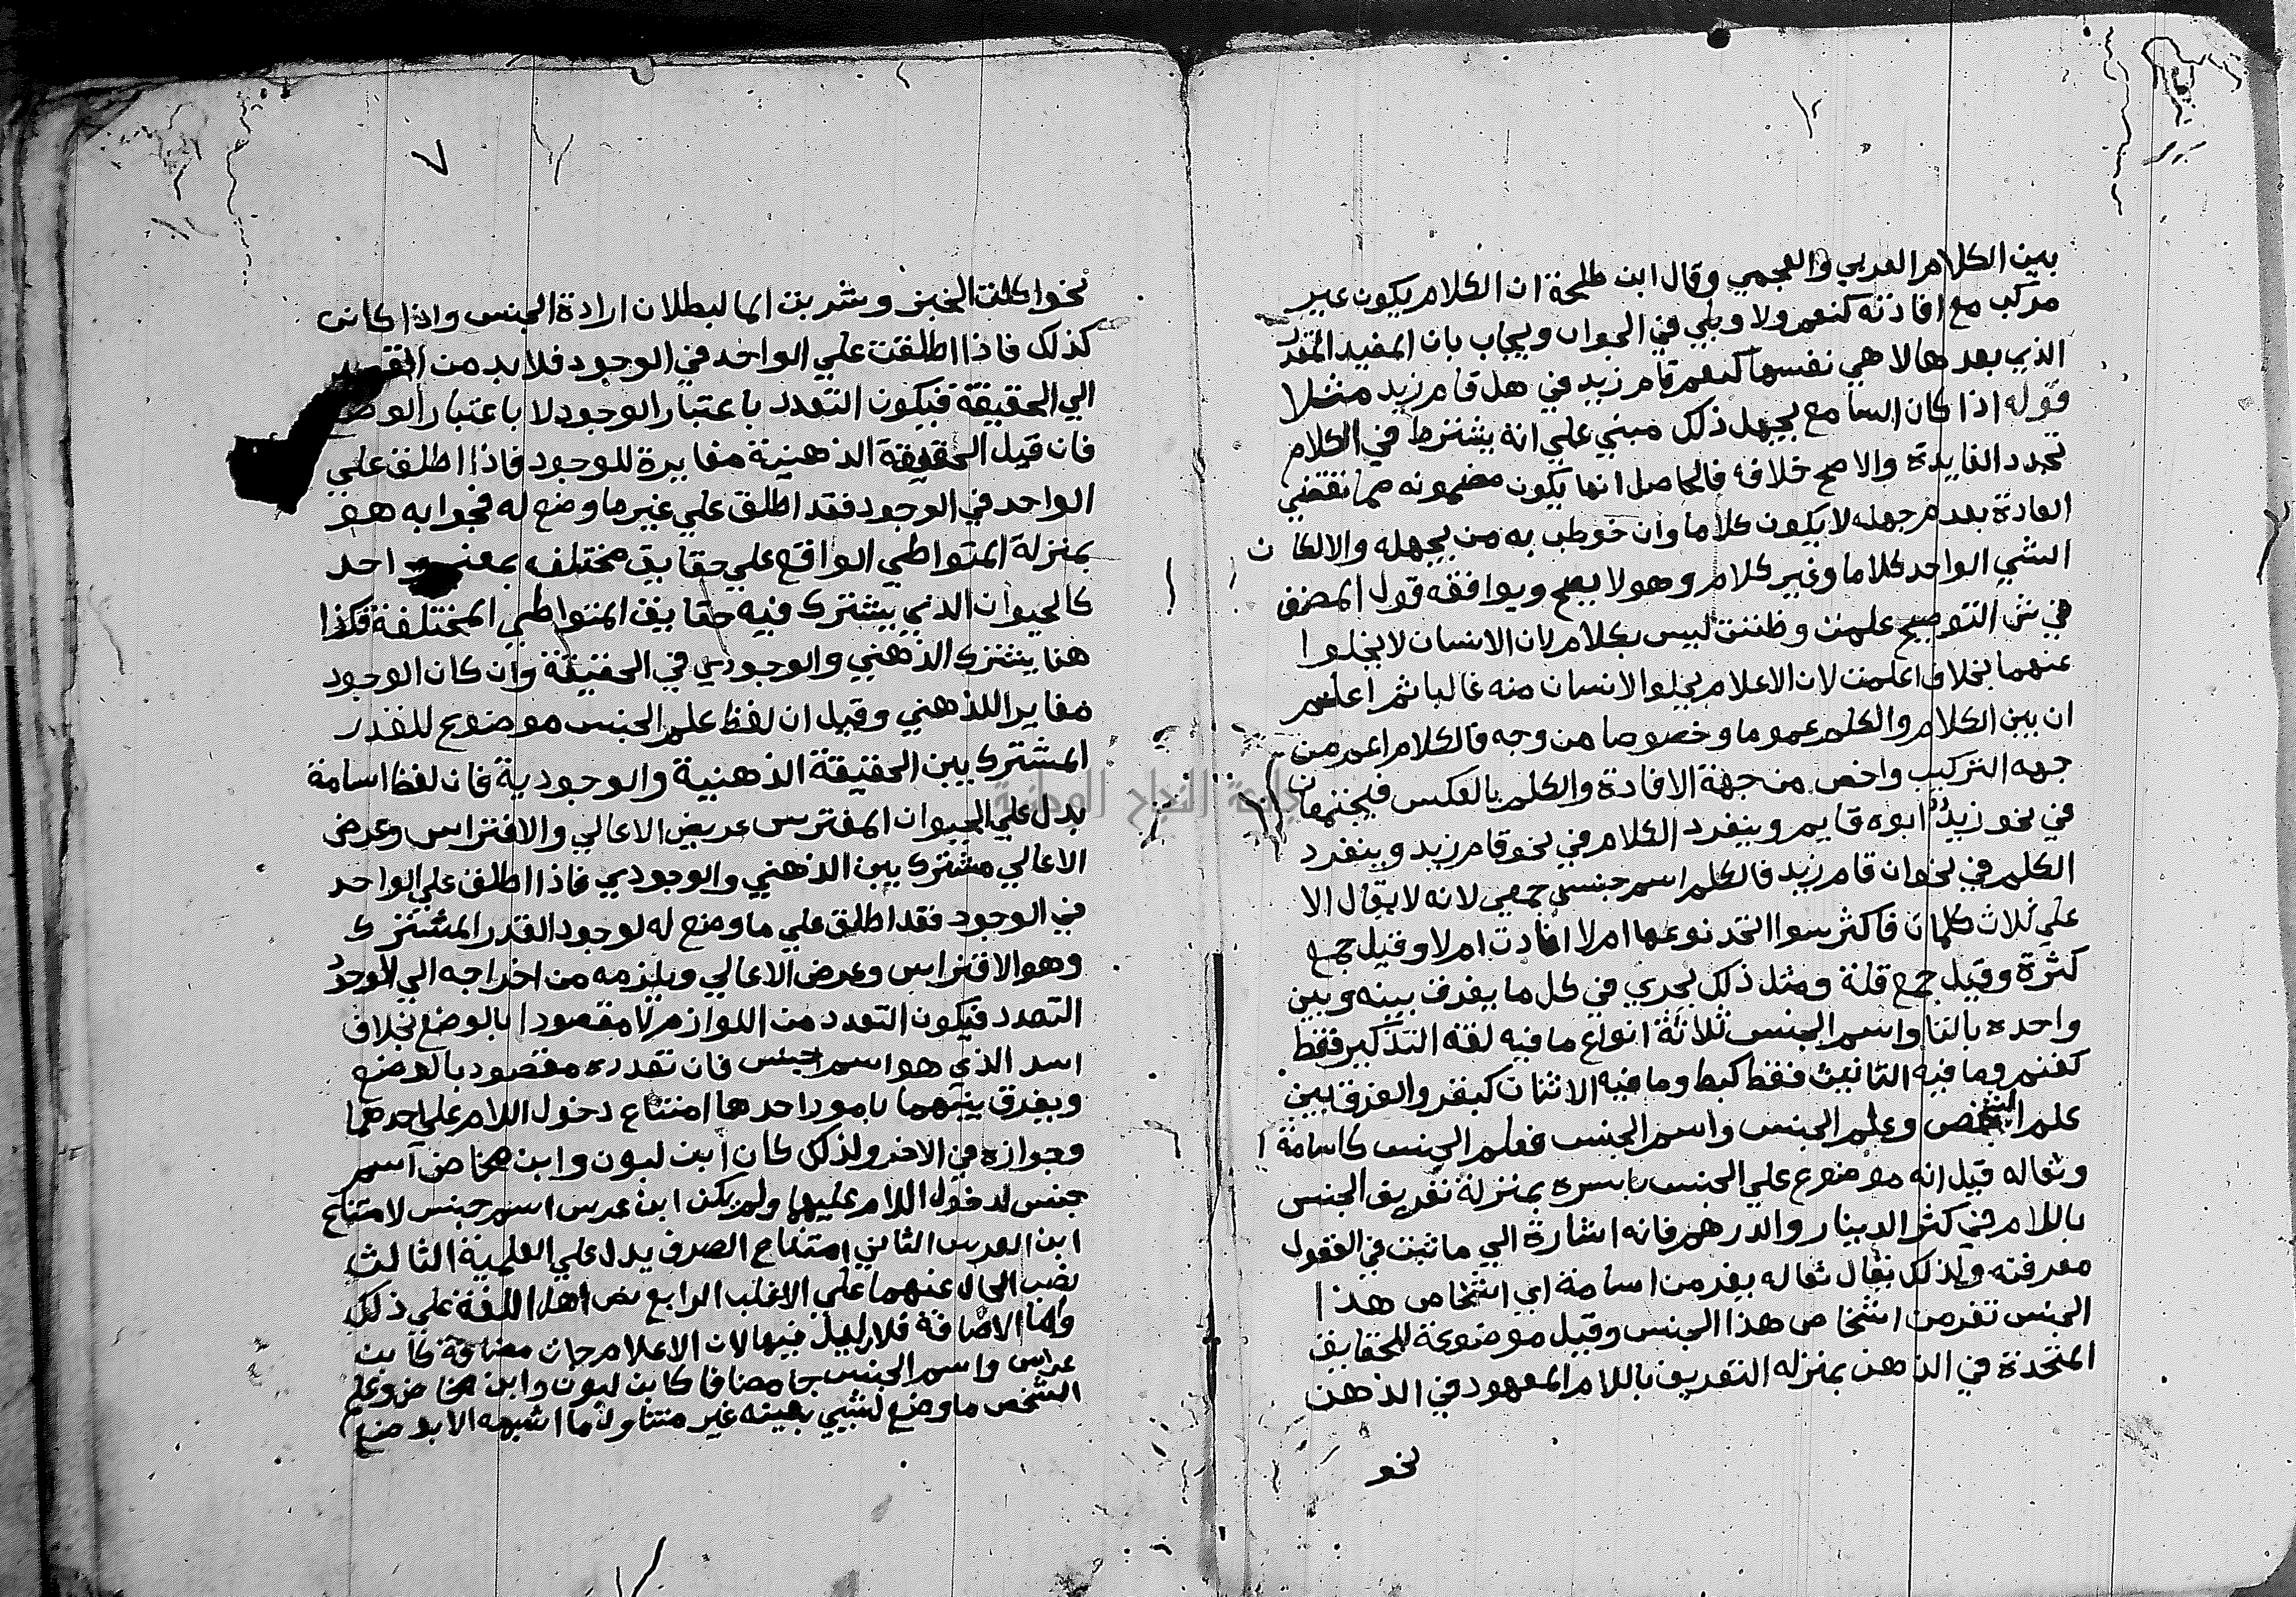 بين الكلام العربي والعجمي وقال ابن طلحة ان الكلام يكون غير
مركب مع افادته كنعم ولا وبلي في الجواب ويجاب بان المفيد المقدر
الذي بعدها لا هي نفسها كنعم قام زيد في هل قام زيد مثلا
قوله اذا كان السامع يجهل ذلك مبني علي انه يشترط في الكلام
تجدد الفايدة والاصح خلافه فالحاصل انها يكون مضمونه مما تقتضي
العادة بعدم جهله لا يكون كلاما وان خوطب به من يجهله والا لكان
الشي الواحد كلاما وغير كلام وهو لا يصح ويوافقه قول المصنف
في متن التوضيح علمت وظننت ليس بكلام لان الانسان لا يخلوا
عنهما بخلاف اعلمت لان الاعلام يخلوا الانسان منه غالبا ثم اعلم
ان بين الكلام والكلم عموما وخصوصا من وجه فالكلام اعم من
جهه التركيب واخص من جهة الافادة والكلم بالعكس فيجتمعان
في نحو زيد ابوه قايم وينفرد الكلام في نحو قام زيد وينفرد
الكلم في نحو ان قام زيد فالكلم اسم جنسي جمعي لانه لا يقال الا
علي ثلاث كلمات فاكثر سوا اتحد نوعها ام لا افادت ام لا وقيل جمع
كثرة وقيل جمع قلة ومثل ذلك يجري في كل ما يفرق بينه وبين
واحده بالتا واسم الجنس ثلاثة انواع ما فيه لغه التذكير فقط
كغنم وما فيه التانيث فقط كبط وما فيه الاثنان كبقر والفرق بين
علم الشخص وعلم الجنس واسم الجنس فعلم الجنس كاسامة
وثعاله قيل انه موضوع علي الجنس باسره بمنزلة تعريف الجنس
باللام في كثر الدينار والدرهم فانه اشارة الي ما ثبت في العقول
معرفته ولذلك يقال ثعاله يفر من اسامة اي اشخاص هذا
الجنس تفر من اشخاص هذا الجنس وقيل موضوعة للحقايق
المتحدة في الذهن بمنزله التعريف باللام المعهود في الذهن
نحو
٧
نحو اكلت الخبز وشربت الما لبطلان ارادة الجنس واذا كانت
كذلك فاذا اطلقت علي الواحد في الوجود فلا بد من القصد
الي الحقيقة فيكون التعدد باعتبار الوجود لا باعتبار الوضع
فان قيل الحقيقة الذهنية مغايرة للوجود فاذا اطلق علي
الواحد في الوجود فقد اطلق علي غير ما وضع له فجوابه هو
بمنزلة المتواطي الواقع علي حقايق مختلفه بمعني واحد
كالحيوان الذي يشترك فيه حقايق المتواطي المختلفة فكذا
هنا يشترك الذهني والوجودي في الحقيقة وان كان الوجود
مغايرا للذهني وقيل ان لفظ علم الجنس موضوع للقدر
المشترك بين الحقيقة الذهنية والوجودية فان لفظ اسامة
يدل علي الحيوان المفترس عريض الاعالي والافتراس وعرض
الاعالي مشترك بين الذهني والوجودي فاذا اطلق علي الواحد
في الوجود فقد اطلق علي ما وضع له لوجود القدر المشترك
وهو الافتراس وعرض الاعالي ويلزمه من اخراجه الي الوجود
التعدد فيكون التعدد من اللوازم لا مقصودا بالوضع بخلاف
اسد الذي هو اسم جنس فان تعدده مقصود بالوضع
ويفرق بينهما بامور احدها امتناع دخول اللام علي احدهما
وجوازه في الاخر ولذلك كان ابن لبون وابن مخاض اسم
جنس لدخول اللام عليهما ولم يكن ابن عرس اسم جنس لامتناع
ابن العرس الثاني امتناع الصرف يدل علي العلمية الثالث
نصب الحال عنهما علي الاغلب الرابع نص اهل اللغة علي ذلك
واما الاضافة فلا دليل فيها لان الاعلام جات مضافة كابن
عرس واسم الجنس جا مضافا كابن لبون وابن مخاض وعلم
الشخص ما وضع لشيي بعينه غير متناول ما اشبهه الا بوضع
جامعة النجاح الوطنية